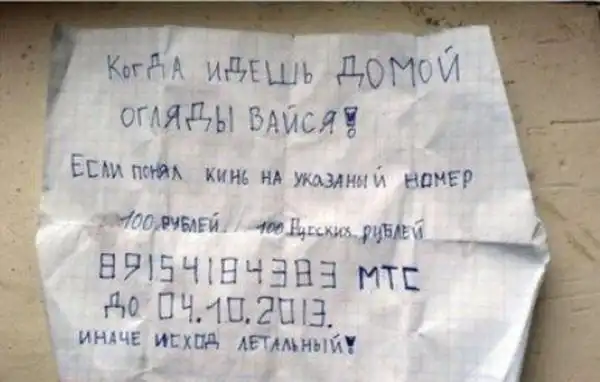 КОГДА ИДЕШЬ ДОМОЙ
ОГЛЯДЫВАЙСЯ!
ЕСЛИ ПОНЯЛ КИНЬ НА УКАЗАНЫЙ НОМЕР
100 РУБЛЕЙ / 100 Русских рублей
89154184383 МТС
ДО 04.10.2013.
ИНАЧЕ ИСХОД ЛЕТАЛЬНЫЙ!